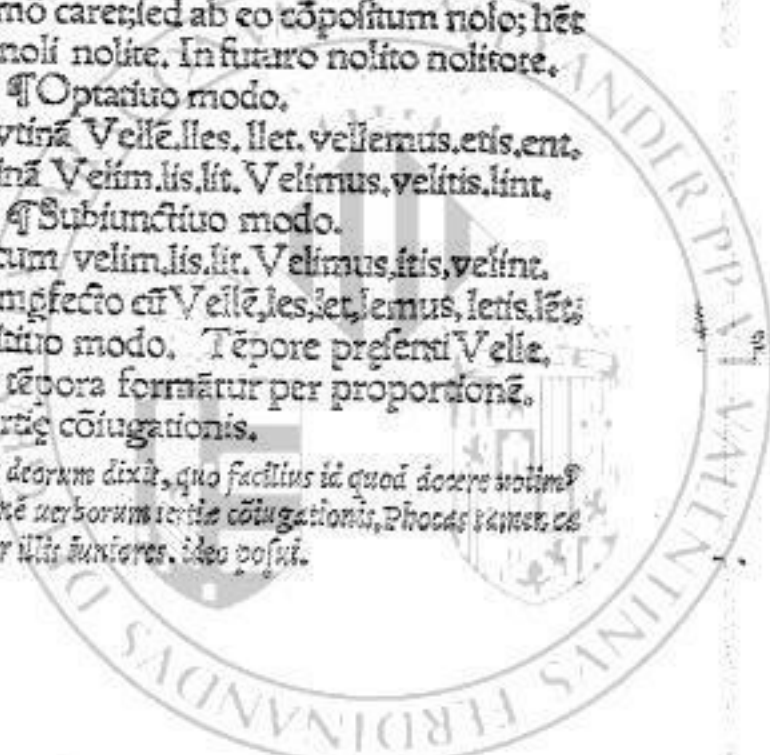 mo caret;sed ab eo cõpositum nolo; hẽt
noli nolite. In futuro nolito nolitote.
¶Optatiuo modo.
vtinã Vellẽ.lles. llet. vellemus.etis.ent.
inã Velim.lis.lit. Velimus.velitis.lint.
¶Subiunctiuo modo.
cum velim.lis.lit. Velimus.itis.velint.
cũ Vellẽ.les.let.lemus. letis.lẽt;
itiuo modo. Tẽpore presenti Velle.
tẽpora formãtur per proportionẽ.
rtię cõiugationis.
deorum dixit, quo facilius id quod docere
nẽ uerborum tertiæ cõiugationis. Phocas tamen
r illis iuniores. ideo posui.
ANDER PP VI VALENTINVS FERDINANDVS